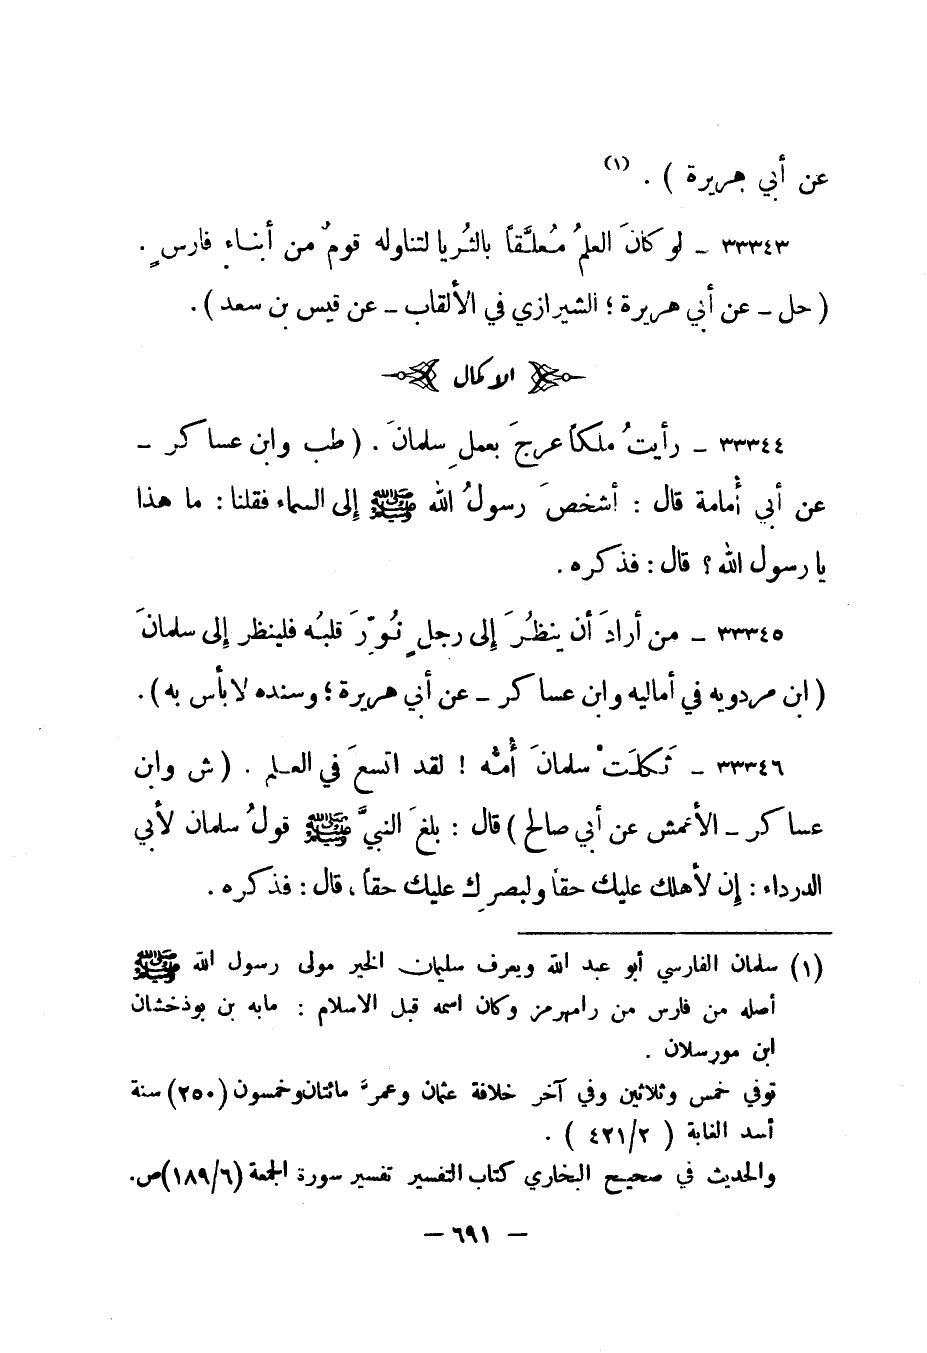 عن أبي هريرة ) . (١)
٣٣٣٤٣ ـ لو كانَ العلمُ مُعلَّقاً بالثُريا لتناوله قومٌ من أبناء فارسٍ .
( حل ـ عن أبي هريرة ؛ الشيرازي في الألقاب ـ عن قيس بن سعد ) .
الاكمال
٣٣٣٤٤ ـ رأيتُ ملكاً عرجَ بعملِ سلمانَ . ( طب وابن عساكر ـ
عن أبي أُمامة قال : أشخصَ رسولُ الله ﷺ إلى السماء فقلنا : ما هذا
يا رسول الله ؟ قال : فذكره .
٣٣٣٤٥ ـ من أرادَ أن ينظُرَ إلى رجلٍ نُوِّرَ قلبُه فلينظر إلى سلمانَ
( ابن مردويه في أماليه وابن عساكر ـ عن أبي هريرة ؛ وسنده لا بأس به ) .
٣٣٣٤٦ ـ ثَكلَتْ سلمانَ أُمُّه ! لقد اتسعَ في العلم . ( ش وابن
عساكر ـ الأعمش عن أبي صالح ) قال : بلغَ النبيَّ ﷺ قولُ سلمان لأبي
الدرداء : إن لأهلك عليك حقاً ولبصرِك عليك حقاً ، قال : فذكره .
(١) سلمان الفارسي أبو عبد الله ويعرف سليمان الخير مولى رسول الله ﷺ
أصله من فارس من رامهرمز وكان اسمه قبل الاسلام : مابه بن بوذخشان
ابن مورسلان .
توفي خمس وثلاثين وفي آخر خلافة عثمان وعمرَّ مائتان وخمسون (٢٥٠) سنة
أسد الغابة ( ٤٢١/٢ ) .
والحديث في صحيح البخاري كتاب التفسير تفسير سورة الجمعة (١٨٩/٦) ص.
ـ ٦٩١ ـ